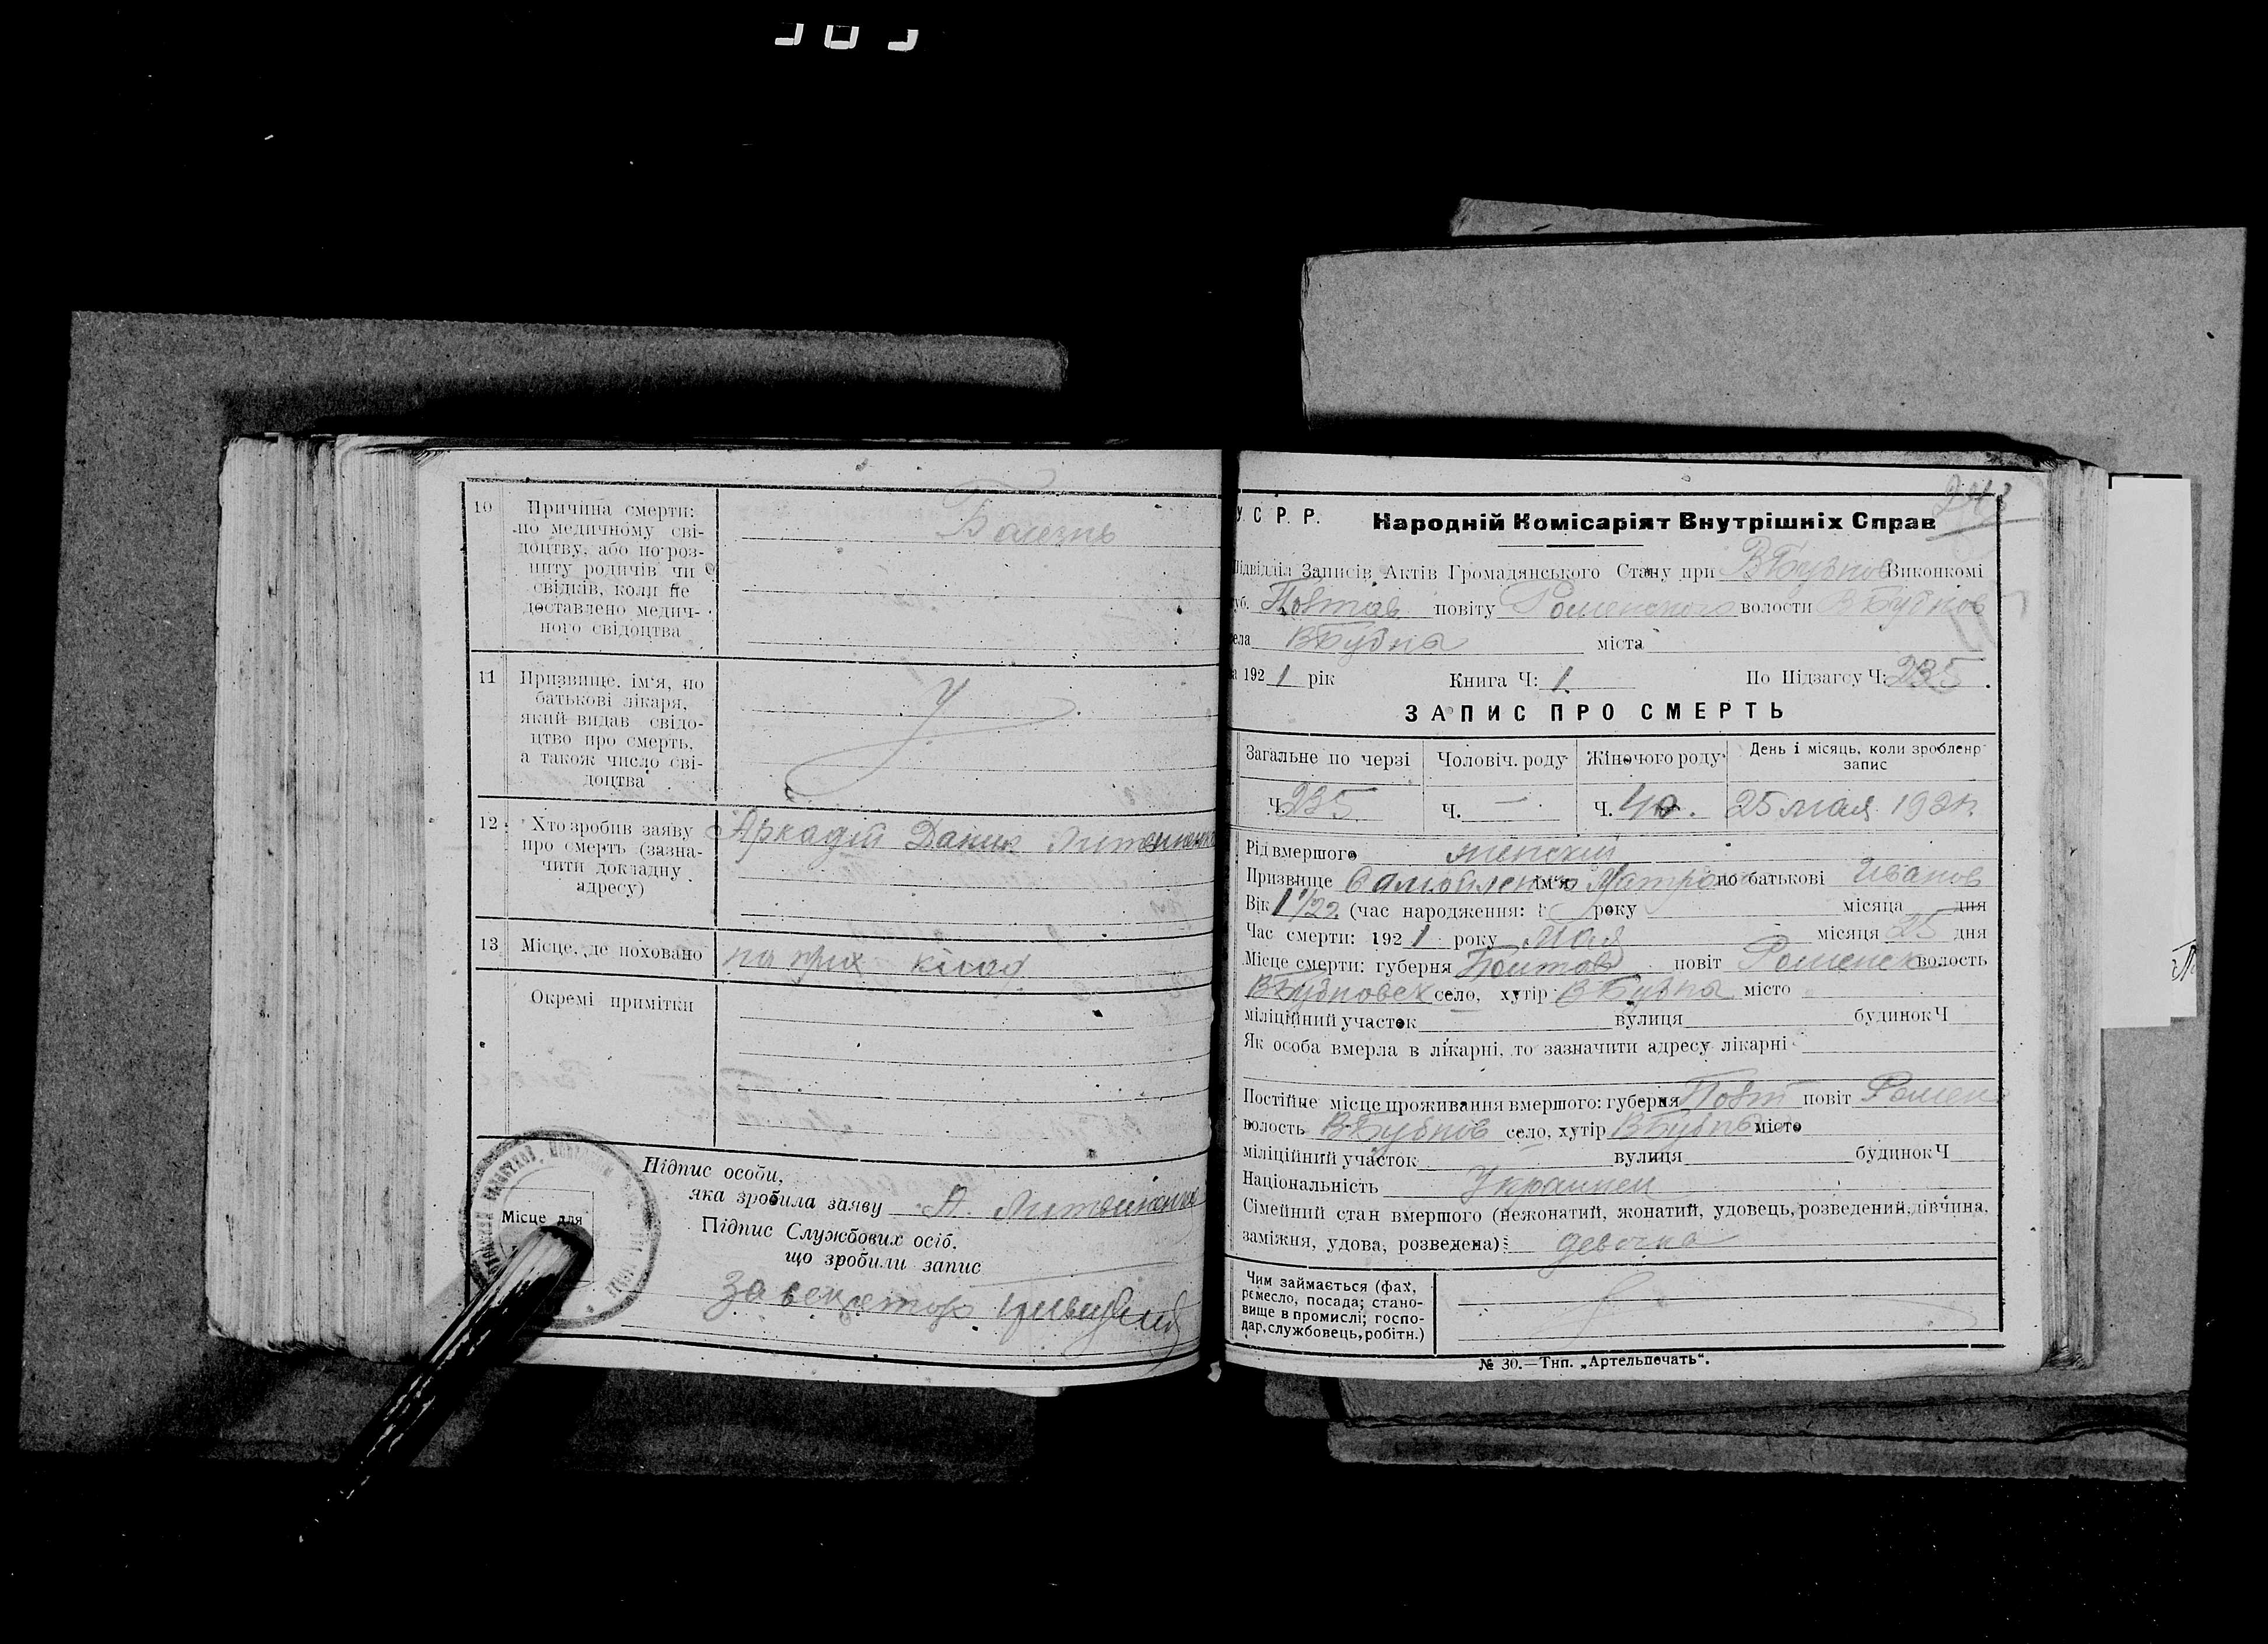 10 Причина смерти:
по медичному сві-
доцтву, або по роз-
питу родичів чи
свідків, коли не
доставлено медич-
ного свідоцтва
Болезнь
11 Призвище, ім'я, по
батькові лікаря,
який видав свідо-
цтво про смерть,
а також число сві-
доцтва
12 Хто зробив заяву
про смерть (зазна-
чити докладну
адресу)
Аркадій Данил
13 Місце, де поховано
на прих
Окремі примітки
Місце для
Підпис особи,
яка зробила заяву А.
Підпис Службових осіб,
що зробили запис
За
243
У. С. Р. Р. Народній Комісаріят Внутрішніх Справ
Підвідділ Записів Актів Громадянського Стану при ВБубнов Виконкомі
губ. Полтав повіту Роменского волости ВБубнов
села ВБубна міста
за 1921 рік Книга Ч: 1. По Підзагсу Ч: 235.
ЗАПИС ПРО СМЕРТЬ
Загальне по черзі Чоловіч. роду Жіночого роду День і місяць, коли зроблено
запис
Ч. 235 Ч. — Ч. 40. 25 мая 1921г.
Рід вмершого женский
Призвище Самойленко ім'я Матрона по батькові Иванов
Вік 1 1/2г. (час народження: року місяца дня
Час смерти: 1921 року Мая місяця 25 дня
Місце смерти: губерня Полтав повіт Роменск волость
ВБубновск село, хутір ВБубна місто
міліційний участок вулиця будинок Ч
Як особа вмерла в лікарні, то зазначити адресу лікарні
Постійне місце проживання вмершого: губерня Полт повіт Ромен
волость ВБубнов село, хутір ВБубна місто
міліційний участок вулиця будинок Ч
Національність Украинец
Сімейний стан вмершого (нежонатий, жонатий, удовець, розведений, дівчина,
заміжня, удова, розведена): девочка
Чим займається (фах,
ремесло, посада; стано-
вище в промислі; госпо-
дар, службовець, робітн.)
№ 30.—Тип. „Артельпечать“.